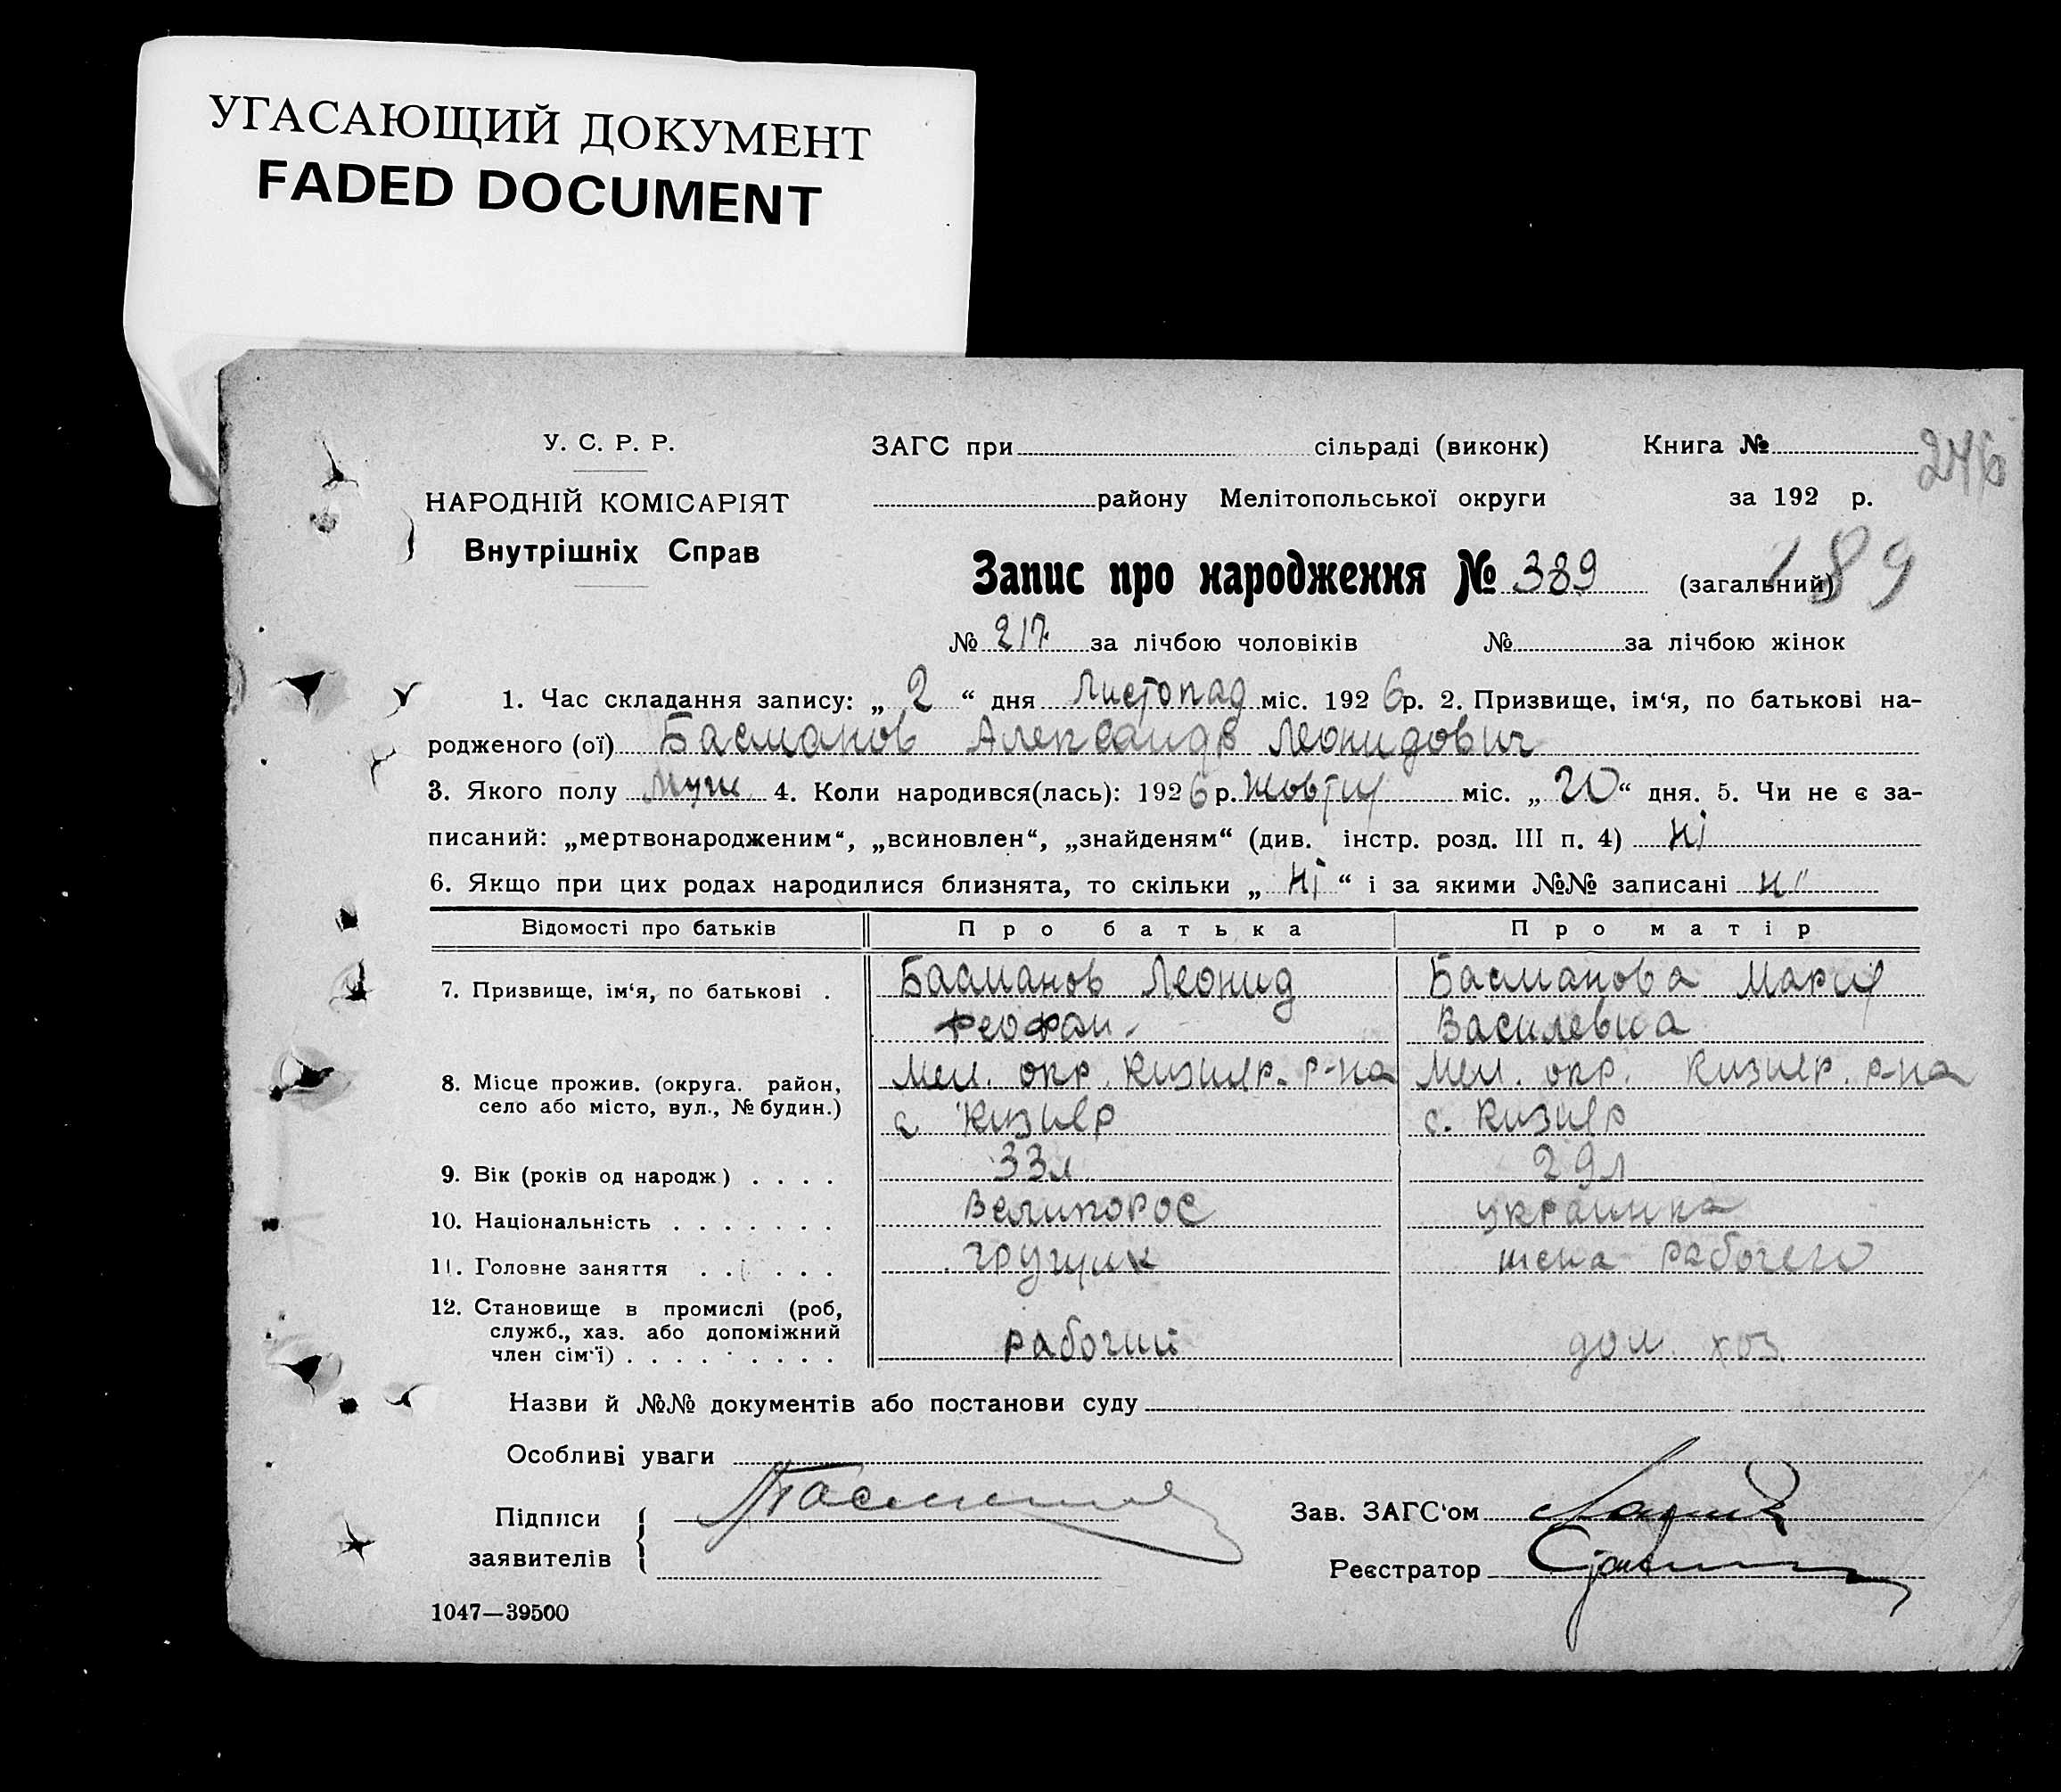 УГАСАЮЩИЙ ДОКУМЕНТ
FADED DOCUMENT
У. С. Р. Р.
НАРОДНІЙ КОМІСАРІЯТ
Внутрішніх Справ
ЗАГС при сільраді (виконк)
району Мелітопольської округи
Книга №
246
за 192 р.
Запис про народження № 389 (загальний)
189
№ 217 за лічбою чоловіків № за лічбою жінок
1. Час складання запису: „ 2 “ дня Листопад міс. 1926 р. 2. Призвище, ім‘я, по батькові на-
родженого (ої) Басманов Александр Леонидович
3. Якого полу муж 4. Коли народився(лась): 1926 р. Жовтня міс. „ 20 “ дня. 5. Чи не є за-
писаний: „мертвонародженим“, „всиновлен“, „знайденям“ (див. інстр. розд. III п. 4) ні
6. Якщо при цих родах народилися близнята, то скільки „ ні “ і за якими №№ записані ні
Відомості про батьків Про батька Про матір
7. Призвище, ім‘я, по батькові . Басманов Леонид Басманова Мария
Феофан. Василевна
8. Місце прожив. (округа. район, Мел. окр. Кизияр. р-на Мел. окр. Кизияр. р-на
село або місто, вул., № будин.) с Кизияр с. Кизияр
9. Вік (років од народж) . . . . 33л. 29л
10. Національність . . . . . . . Великорос украинка
11. Головне заняття . . . . . грущик жена рабочего
12. Становище в промислі (роб,
служб., хаз. або допоміжний
член сім‘ї) . . . . . . . . . рабочий дом. хоз.
Назви й №№ документів або постанови суду
Особливі уваги
Підписи
заявителів
Зав. ЗАГС‘ом
Реєстратор
1047—39500